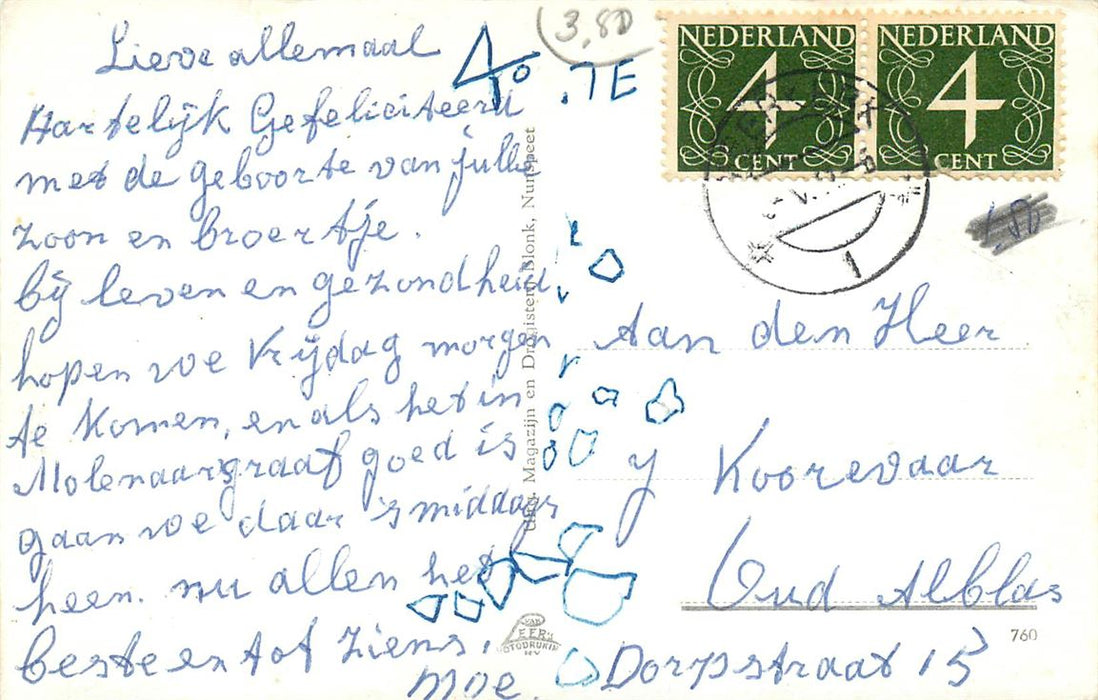 Lieve allemaal
Hartelijk Gefeliciteerd
met de geboorte van jullie
zoon en broertje.
bij leven en gezondheid
hopen we Vrijdag morgen
te komen, en als het in
Molenaarsgraaf goed is
gaan we daar 's middags
heen. nu allen het
beste en tot ziens.
Moe.
4o .TE
3,80
NEDERLAND
4
CENT
NEDERLAND
4
CENT
1
1,50
Uitg. Magazijn en Drogisterij Blonk, Nunspeet
VAN
LEER'S
FOTODRUKIN
NV
Aan den Heer
J Koorevaar
Oud Alblas
760
Dorpstraat 15